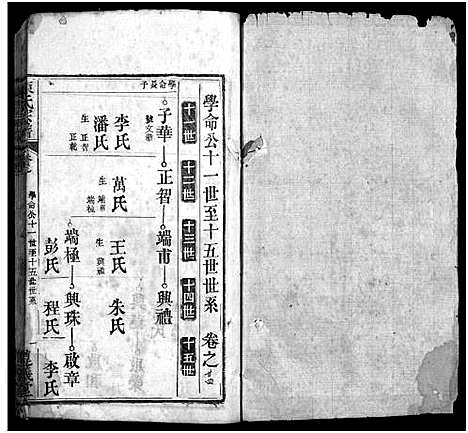 學命公十一世至十五世世系 卷之
十一世 十二世 十三世 十四世 十五世
學命長子
子華 正智 端甫 興禮
號文
李氏 萬氏 王氏 朱氏
潘氏
生 正智 正乾
生 端甫 端極
生 興禮
端極 興珠 啟章
彭氏 程氏 李氏
學命公十一世至十五世世系